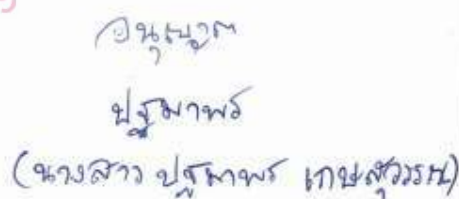 อนุญาต
ปฐมาพร
(นางสาว ปฐมาพร เกษสุวรรณ)